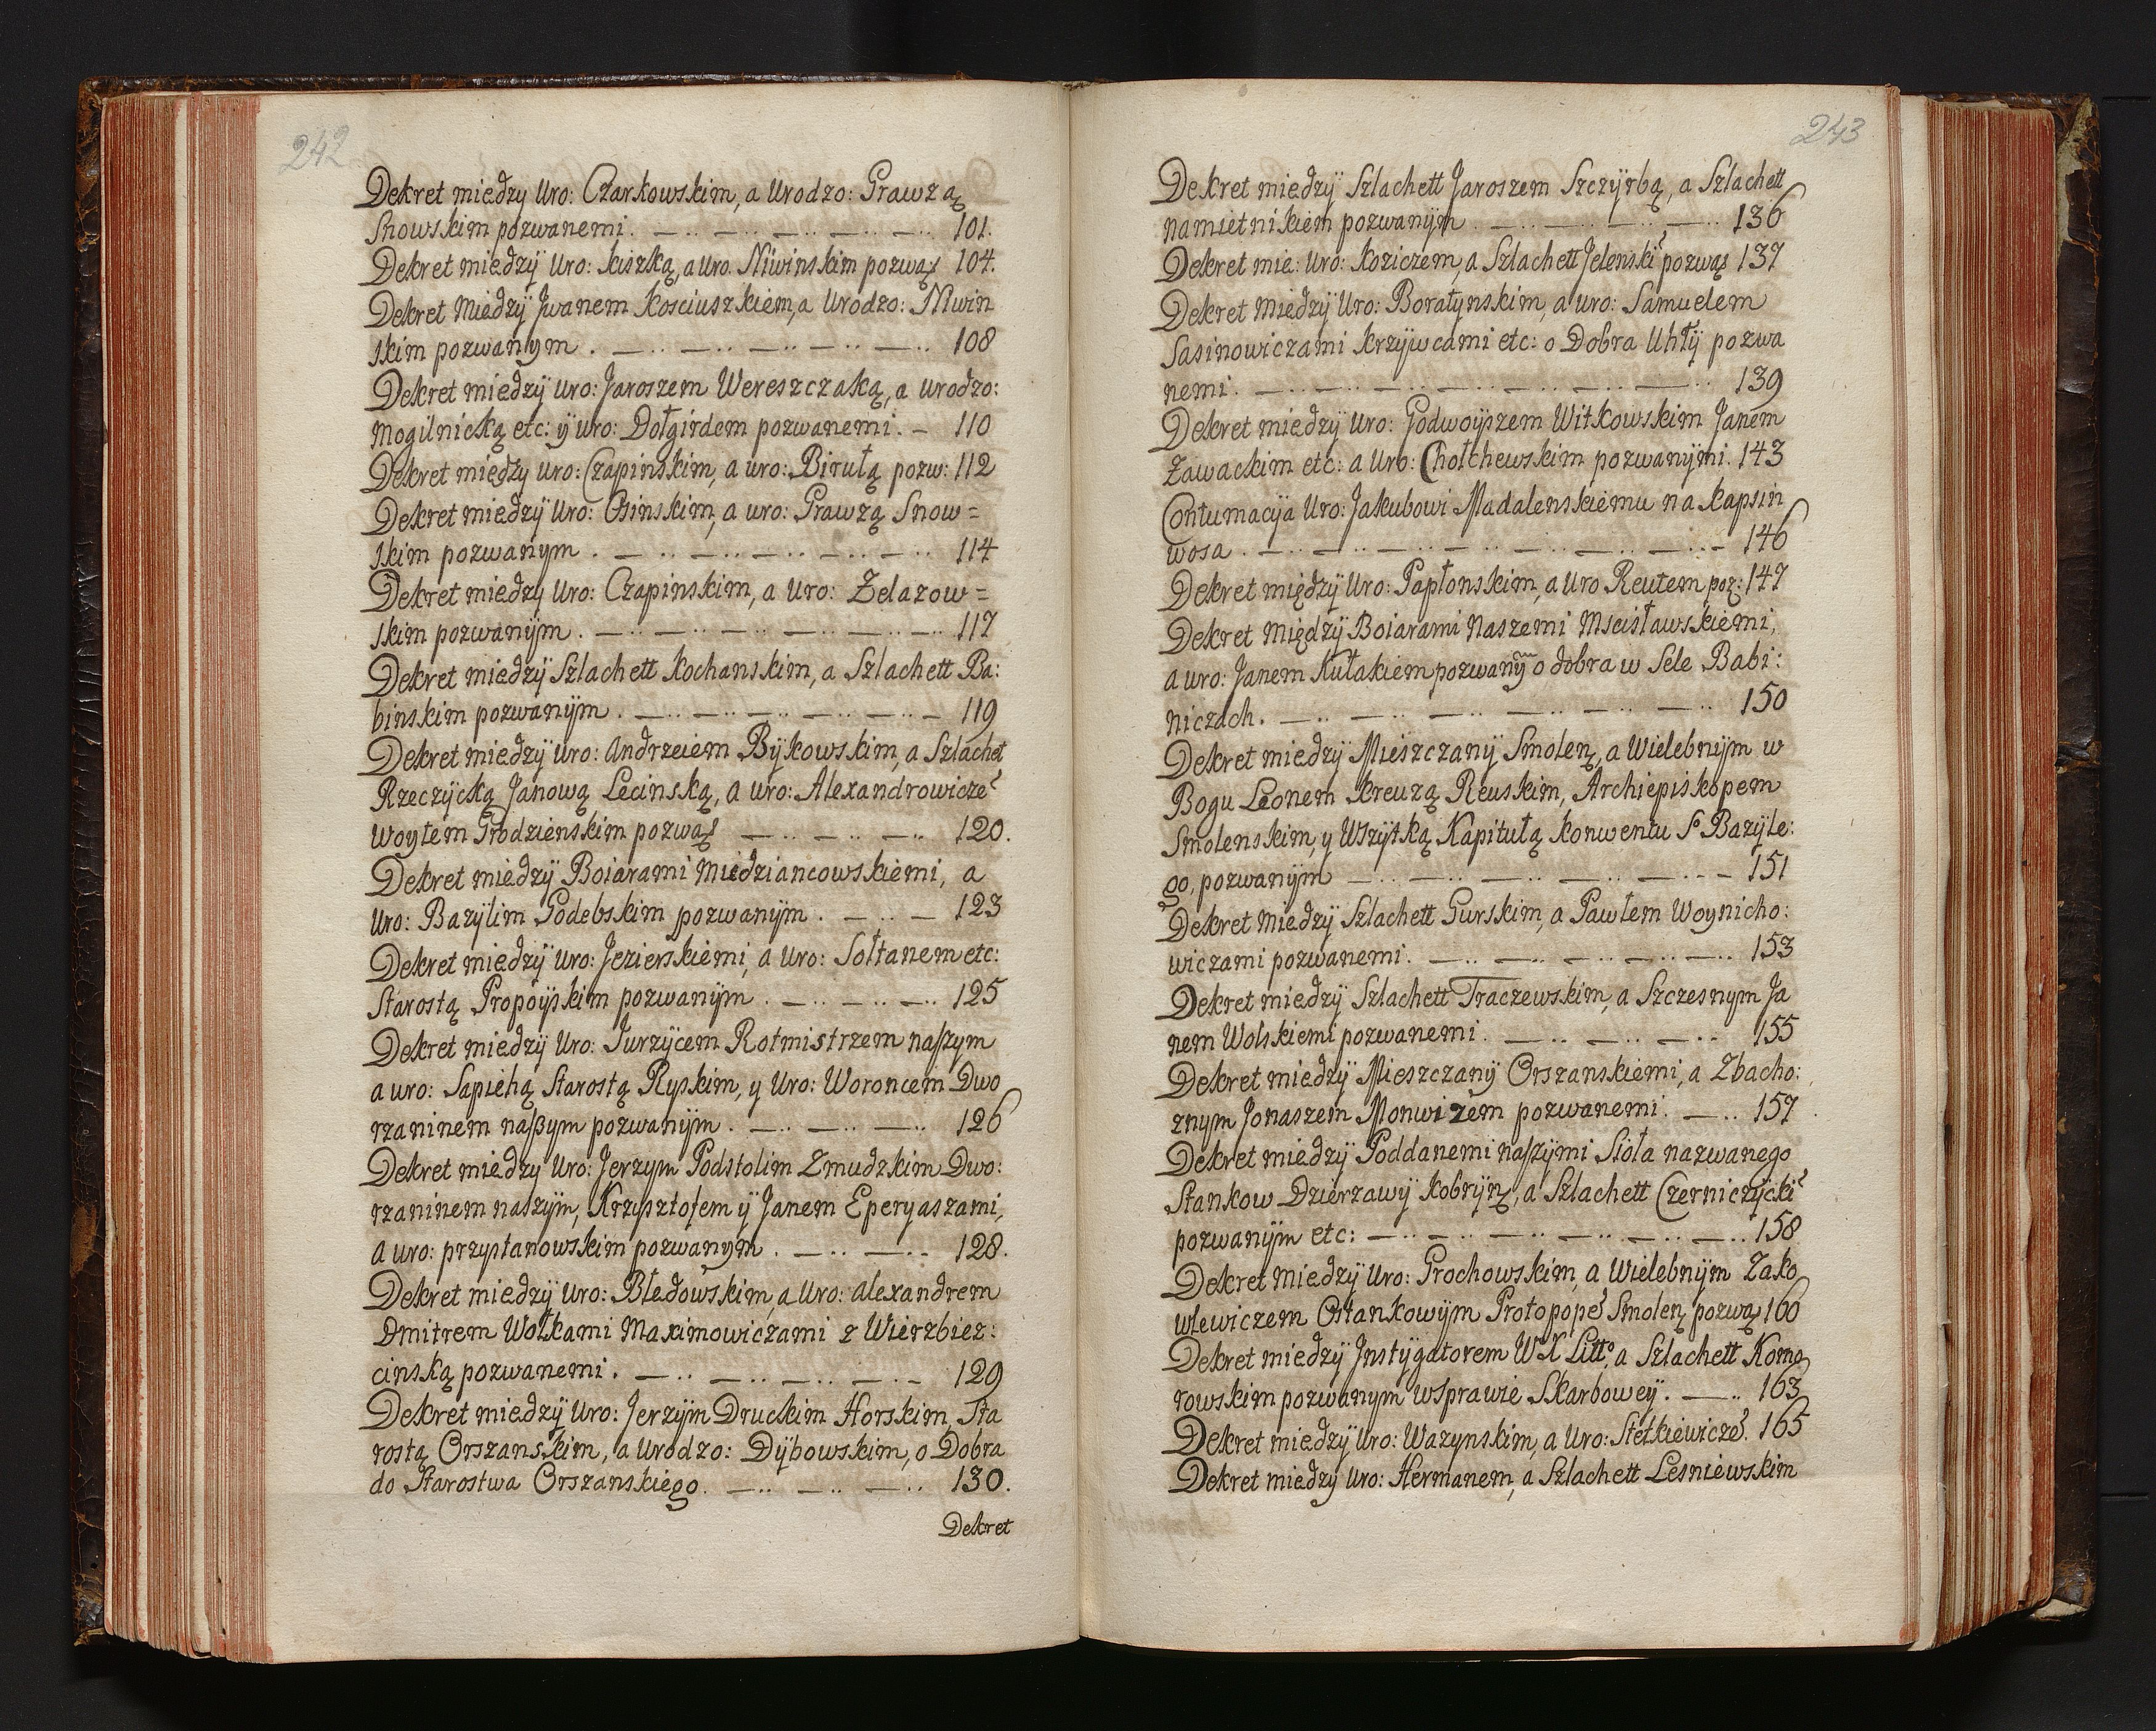 242
Dekret miedzy Uro: Czarkowskim, a Urodzo: Prawzą
Snowskim pozwanemi. 101.
Dekret miedzÿ Uro: kiszką, a Uro. Niwinskim pozwą 104.
Dekret Miedzÿ Jwanem Kosciuszkiem, a Urodzo: Niwin
skim pozwanym. 108
Dekret miedzÿ Uro: Jaroszem Wereszczaką, a Urodzo:
Mogilnicką etc: ÿ Uro: Dołgirdem pozwanemi. 110
Dekret między Uro: Czapinskim, a uro: Birułą pozw: 112
Dekret miedzÿ Uro: Osinskim, a uro: Prawzą Snow=
skim pozwanym. 114
Dekret miedzy Uro: Czapinskim, a Uro: Zelazow=
skim pozwanÿm. 117
Dekret miedzÿ Szlachett Kochanskim, a Szlachett Ba:
binskim pozwanÿm. 119
Dekret miedzÿ Uro: Andrzeiem Bÿkowskim, a Szlachet
Rzeczÿcką Janową Lecinską, a Uro: Alexandrowicze
Woytem Grodzienskim pozwą 120.
Dekret miedzÿ Boiarami Miedziancowskiemi, a
Uro: Bazÿlim Godebskim pozwanÿm. 123
Dekret miedzÿ Uro: Jezierskiemi, a Uro: Sołtanem etc:
Starostą Propoÿskim pozwanÿm. 125
Dekret miedzÿ Uro: Turzÿcem Rotmistrzem naszym
a uro: Sapiehą Starostą Ryskim, y Uro: Woroncem Dwo
rzaninem naszym pozwanÿm. 126
Dekret miedzy Uro: Jerzym Podstolim Zmudzkim Dwo:
rzaninem naszÿm, Krzysztofem ÿ Janem Eperyaszami,
a uro: przystanowskim pozwanym. 128.
Dekret miedzÿ Uro: Błedowskim, a Uro: Alexandrem
Dmitrem Wołkami Maximowiczami z Wierzbiez:
cinską pozwanemi. 129
Dekret miedzÿ Uro: Jerzÿm Druckim Horskim, Sta
rostą Orszanskim, a Urodzo: Dÿbowskim, o Dobra
do Starostwa Orszanskiego. 130.
Dekret
243
Dekret miedzÿ Szlachett Jaroszem Szczÿrbą, a Szlachett
namietnikiem pozwanÿm. 136
Dekret mie: Uro: Koziczem, a Szlachett Jelenski pozwą 137
Dekret miedzÿ Uro: Boratynskim, a uro: Samuelem
Sasinowiczami Krzÿwcami etc: o Dobra Uhłÿ pozwa
nemi. 139
Dekret miedzÿ Uro: Podwoÿszem Witkowskim Janem
Zawackim etc: a Uro: Chołchewskim pozwanÿmi. 143
Contumacÿa Uro: Jakubowi Madalenskiemu na Kapsin
wosa. 146
Dekret międzÿ Uro: Papłonskim, a Uro Reutem poz: 147
Dekret Międzÿ Boiarami Naszemi Mscisławskiemi,
a uro: Janem Kułakiem pozwanÿ o dobra w Sele Babi:
niczach. 150
Dekret miedzÿ Mieszczanÿ Smolen, a Wielebnÿm w
Bogu Leonem Kreuzą Reuskim, Archiepiskopem
Smolenskim, y Wszÿtką Kapitułą Konwentu So Bazÿle:
go, pozwanÿm 151
Dekret miedzÿ Szlachett Gurskim, a Pawłem Woynicho:
wiczami pozwanemi. 153
Dekret miedzÿ Szlachett Traczewskim, a Szczesnym Ja
nem Wolskiemi pozwanemi. 155
Dekret miedzÿ Mieszczanÿ Orszanskiemi, a Zbacho:
znym Jonaszem Monwizem pozwanemi. 157
Dekret miedzÿ Poddanemi naszÿmi Sioła nazwanego
Stankow Dzierzawÿ Kobrÿn, a Szlachett Czerniczÿcki
pozwanÿm etc: 158
Dekret Miedzÿ Uro: Grochowskim, a Wielebnÿm Zako
wlewiczem Ostankowÿm Protopope Smolen pozwą 160
Dekret miedzÿ Jnstÿgatorem WX Litto, a Szlachett Komo
rowskim pozwanym wsprawie Skarbowey. 163
Dekret miedzÿ Uro: Wazynskim, a Uro: Stetkiewicze. 165
Dekret miedzy Uro: Hermanem, a Szlachett Lesniewskim